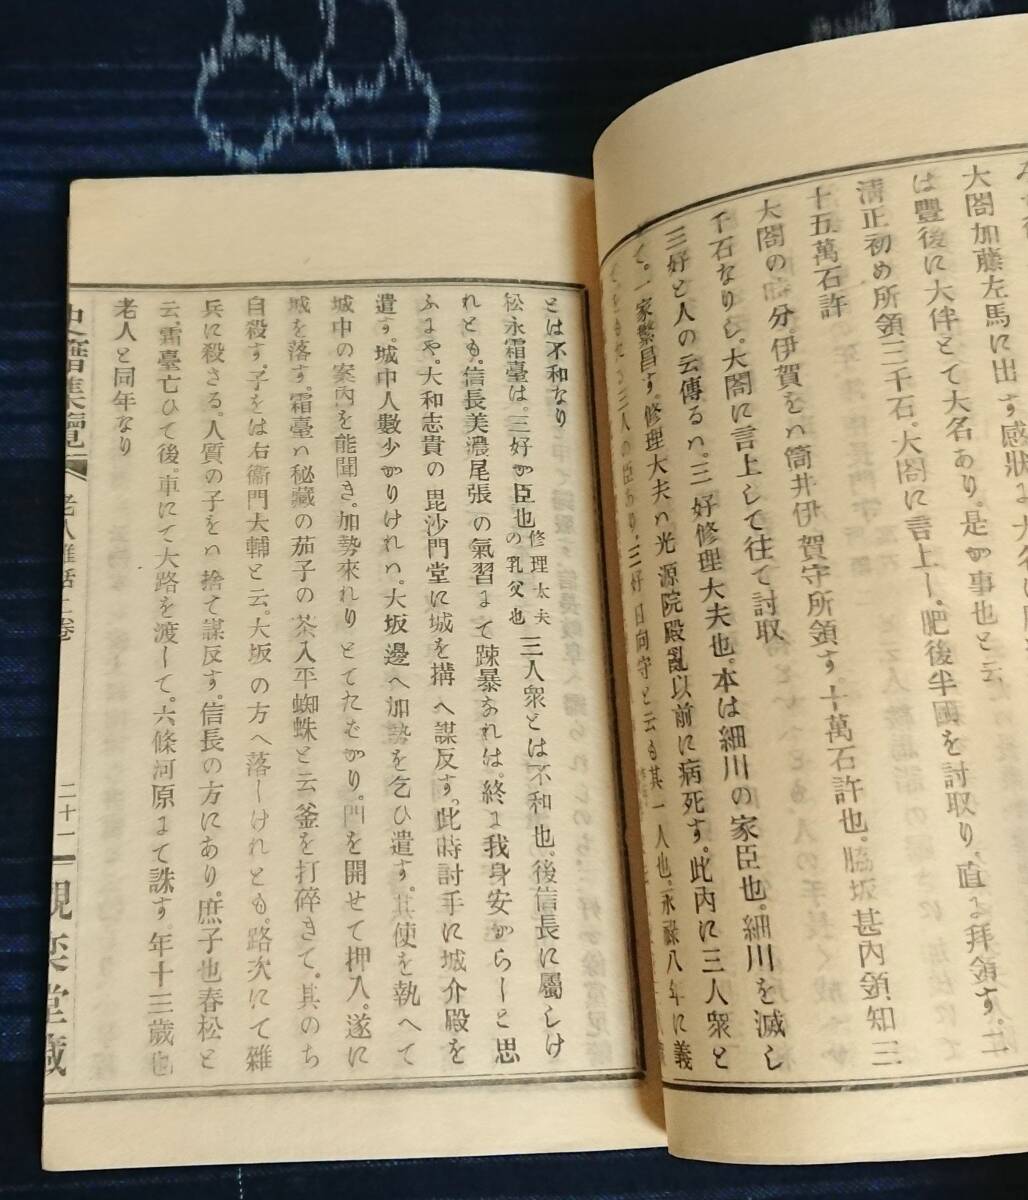 大閤加藤左馬に出す感状よ
は豊後に大伴とて大名あり。是が事也と云
淸正初め所領三千石。大閤に言上し。肥後半國を討取り、直よ拜領す。
十五萬石許
大閤の時分。伊賀をハ筒井伊賀守所領す。十萬石許也。脇坂甚內領知三
千石なりし。大閤に言上して往て討取
三好と人の云傳るハ。三好修理大夫也。本は細川の家臣也。細川を滅し
て。一家繁昌す。修理大夫ハ光源院殿亂以前に病死す。此內に三人衆と
三人の臣あり。三好日向守と云も其一人也。永祿八年に義
とは不和なり
松永霜臺は。三好か臣也修理太夫の乳父也三人衆とは不和也。後信長に屬しけ
れとも。信長美濃尾張の氣習まて踈暴なれは。終よ我身安からしと思
ふよや。大和志貴の毘沙門堂に城を搆へ謀反す。此時討手に城介殿を
遣す。城中人數少かりけれハ。大坂邊へ加勢を乞ひ遣す。其使を執へて
城中の案內を能聞き。加勢來れりとてたむかり。門を開せて押入。遂に
城を落す。霜臺ハ秘藏の茄子の茶入平蜘蛛と云釜を打碎きて。其のち
自殺す。子をは右衞門大輔と云。大坂の方へ落しけれとも。路次にて雜
兵に殺さる。人質の子をハ捨て謀反す。信長の方にあり。庶子也春松と
云。霜臺亡ひて後。車にて大路を渡して。六條河原まて誅す。年十三歲也
老人と同年なり
史籍集覽 老人雜話上卷 二十一 觀奕堂藏